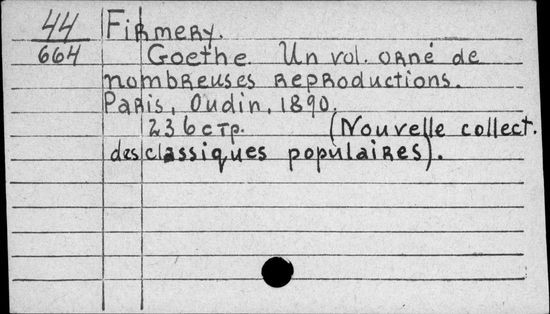 44 Firmery.
664 Goethe. Un vol. orné de
nombreuses reproductions.
Paris, Oudin, 1890.
236 стр. (Nouvelle collect.
des classiques populaires).